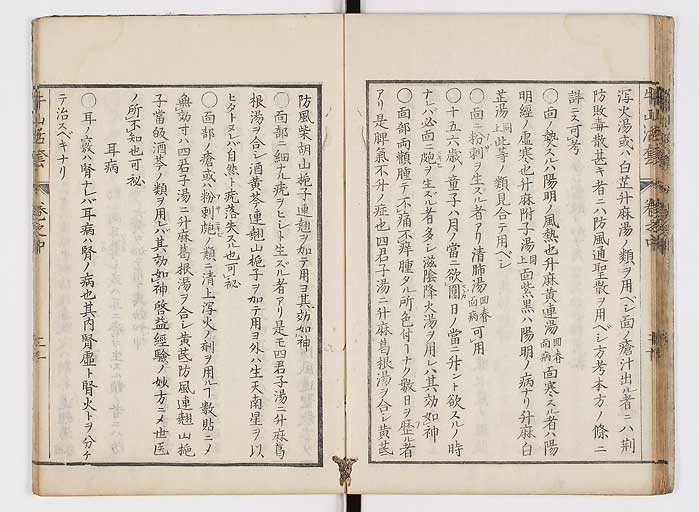 瀉火湯或ハ白芷升麻湯ノ類ヲ用ベシ面ノ瘡汁出ル者ニハ荆
防敗毒散甚キ者ニハ防風通聖散ヲ用ベシ方考本方ノ條ニ
詳ニス可考
○面ノ熱スルハ陽明ノ風熱也升麻黄連湯回春面病面寒スル者ハ陽
明經ノ虚寒也升麻附子湯同上面紫黒ハ陽明ノ病ナリ升麻白
芷湯同上此等ノ類見合テ用ベシ
○面ニ粉刺ヲ生スル者アリ清肺湯回春面病可用
○十五六歳ノ童子ハ月ノ當ニ欲圓日ノ當ニ升ント欲スルノ時
ナレバ必面ニ皰ヲ生ズル者多シ滋陰降火湯ヲ用レバ其効如神
○面部両顴腫テ不痛不痒腫タル所色付コトナク數日ヲ歴ル者
アリ是脾氣不升ノ症也四君子湯ニ升麻葛根湯ヲ合シ黄芪
防風柴胡山梔子連翹ヲ加テ用ヨ其効如神
○面部ニ細ナル疣ヲヒシト生ズル者アリ是モ四君子湯ニ升麻葛
根湯ヲ合シ酒黄芩連翹山梔子ヲ加テ用ヨ外ハ生天南星ヲ以
ヒタトヌレバ自然ト疣落失スル也可秘
○面部ノ瘡或ハ粉刺皰ノ類ニ清上瀉火ノ劑ヲ用ルコト數貼ニメ
無効寸ハ四君子湯ニ升麻葛根湯ヲ合シ黄芪防風連翹山梔
子當皈酒芩ノ類ヲ用レバ其効如神啓益經驗ノ妙方ニメ世医
ノ所不知也可秘
耳病
○耳ノ竅ハ腎ナレバ耳病ハ腎ノ病也其内腎虚ト腎火トヲ分チ
テ治スベキナリ
牛山活套
卷之中